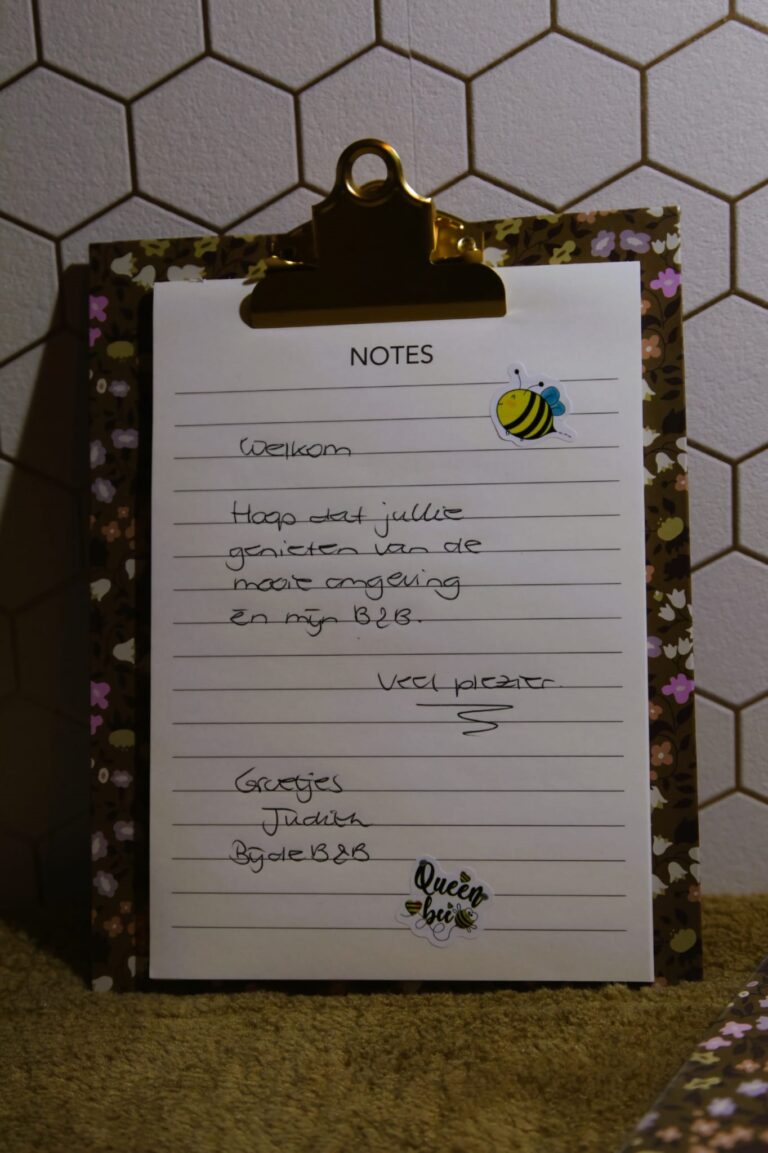 NOTES
Welkom
Hoop dat jullie
genieten van de
mooie omgeving
én mijn B&B.
Veel plezier.
Groetjes
Judith
Bij de B&B
Queen
bee